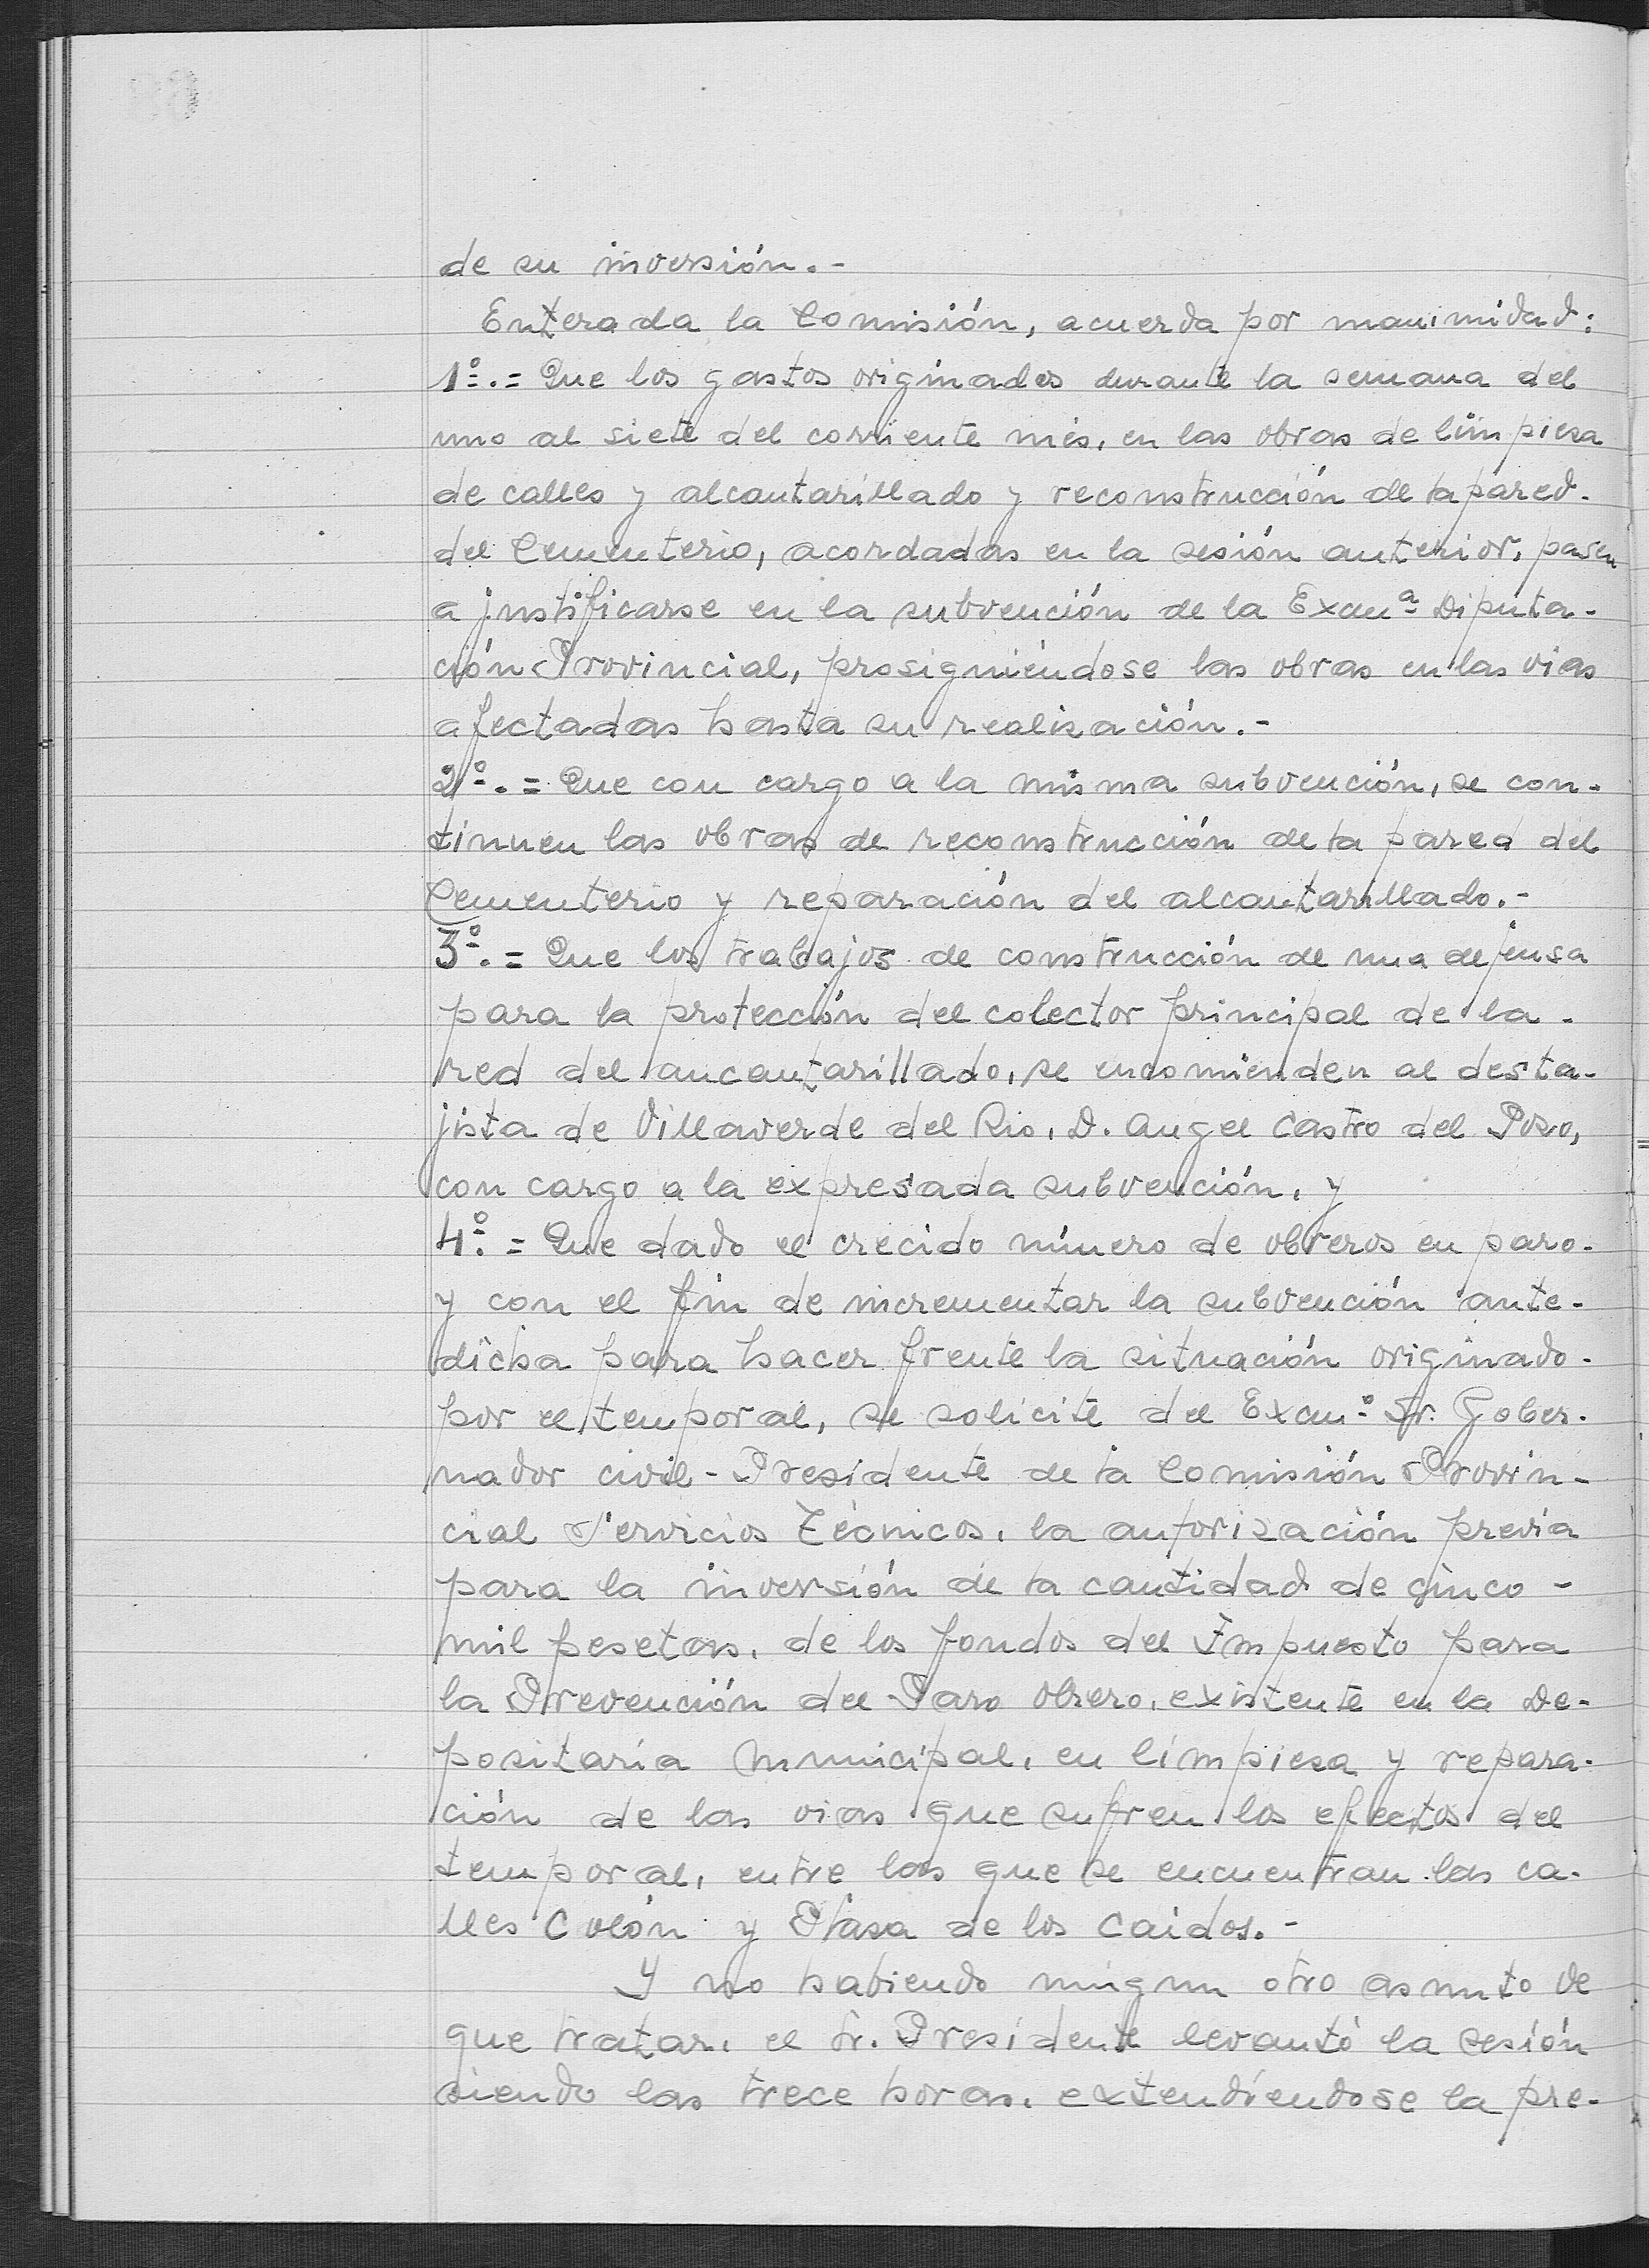 de su inversión.-
Enterada la Comisión, acuerda por unanimidad:
1º.= Que los gastos originados durante la semana del
uno al siete del corriente més, en las obras de limpieza
de calles y alcantarillado y reconstrucción de la pared-
del Cementerio, acordadas en la sesión anterior, pasen
a justificarse en la subvención de la Excmª Diputa-
ción Provincial, prosiguiéndose las obras en las vias
afectadas hasta su realización.-
2º.= Que con cargo a la misma subvención, se con-
tinuen las obras de reconstrucción de la pared del
Cementerio y reparación del alcantarillado.-
3º.= Que los trabajos de construcción de una defensa
para la protección del colector principal de la-
red del ancantarillado, se encomienden al desta-
jista de Villaverde del Rio, D. Angel Castro del Pozo,
con cargo a la expresada subvención, y
4º.= Que dado el crecido número de obreros en paro-
y con el fin de incrementar la subvención ante-
dicha para hacer frente la situación originado-
por el temporal, se solicite del Excmº Sr. Gober-
nador civil-Presidente de la Comisión Provin-
cial Servicios Técnicos, la autorización previa
para la inversión de la cantidad de cinco-
mil pesetas, de los fondos del Impuesto para
la Prevención del Paro Obrero, existente en la De-
positaría Municipal, en limpieza y repara-
ción de las vias que sufren los efectos del
temporal, entre las que se encuentran las ca-
lles Colón y Plaza de los Caidos.-
Y no habiendo ningun otro asunto de
que tratar, el Sr. Presidente levantó la sesión
siendo las trece horas, extendiéndose la pre-